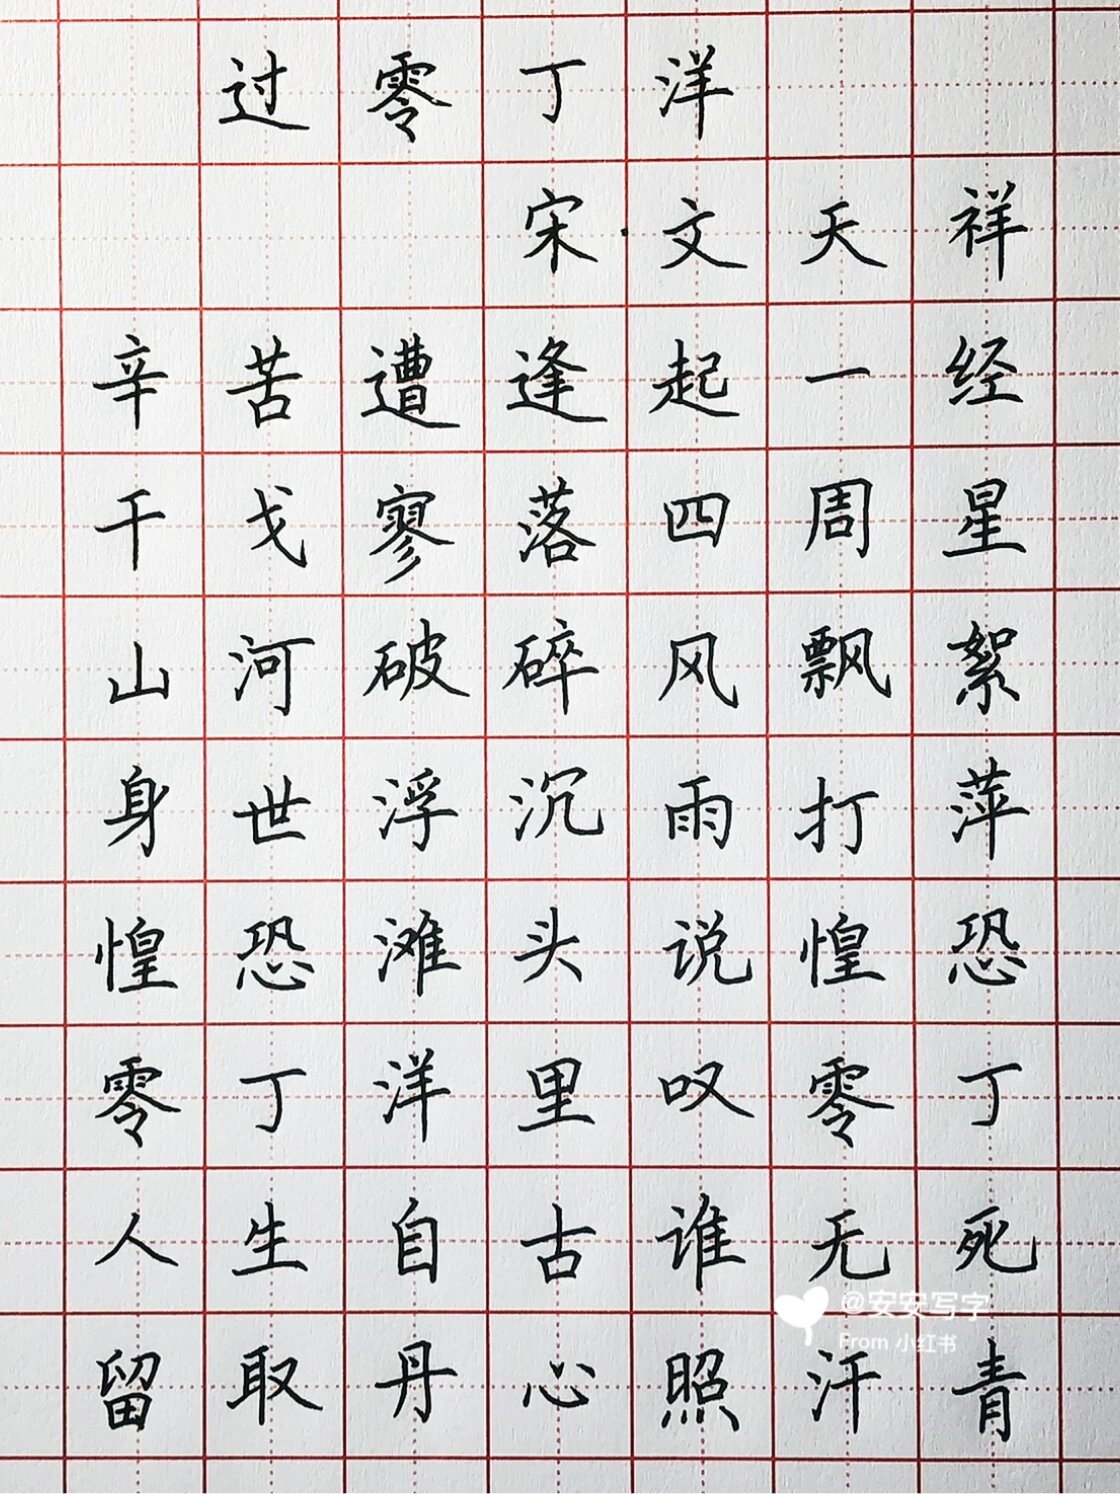 过零丁洋
宋·文天祥
辛苦遭逢起一经
干戈寥落四周星
山河破碎风飘絮
身世浮沉雨打萍
惶恐滩头说惶恐
零丁洋里叹零丁
人生自古谁无死
@安安写字
From 小红书
留取丹心照汗青